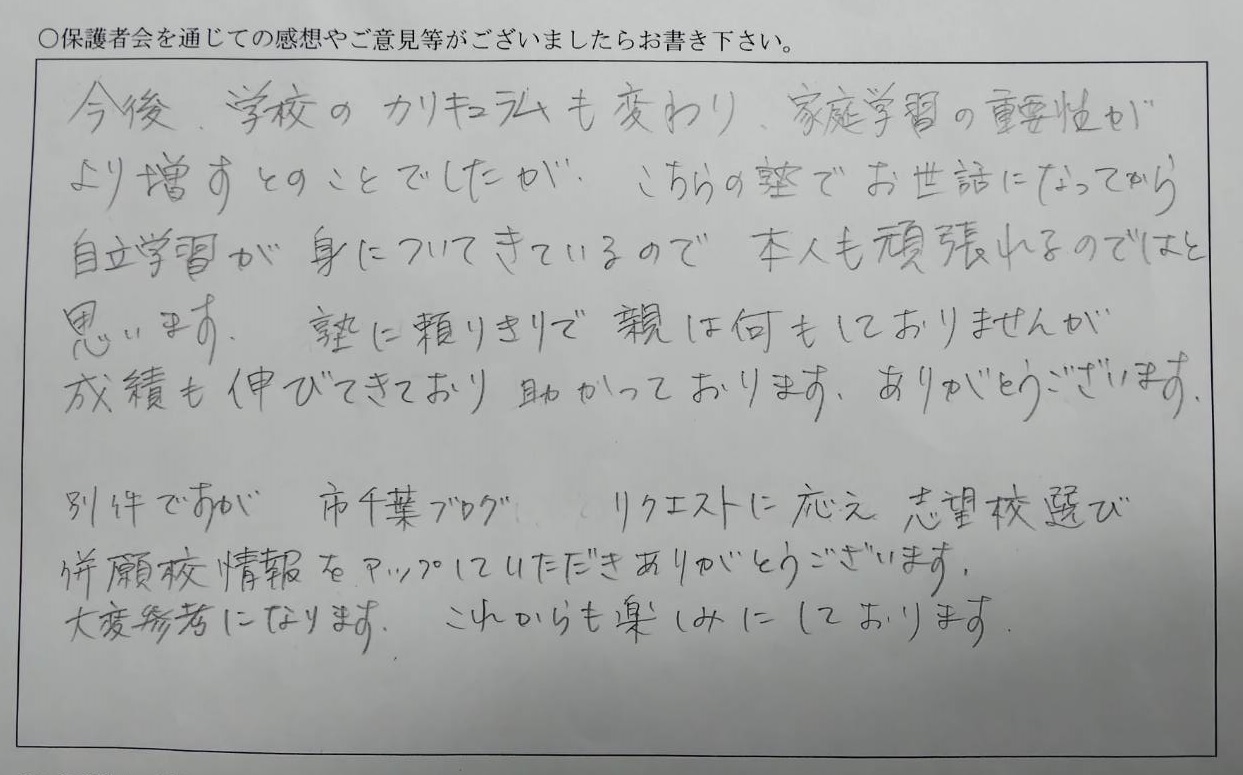 ○保護者会を通じての感想やご意見等がございましたらお書き下さい。
今後、学校のカリキュラムも変わり、家庭学習の重要性が
より増すとのことでしたが、こちらの塾でお世話になってから
自立学習が身についてきているので本人も頑張れるのではと
思います。塾に頼りきりで親は何もしておりませんが
成績も伸びてきており助かっております。ありがとうございます。
別件ですが 市千葉ブログ リクエストに応え 志望校選び
併願校情報をアップしていただきありがとうございます。
大変参考になります。これからも楽しみにしております。